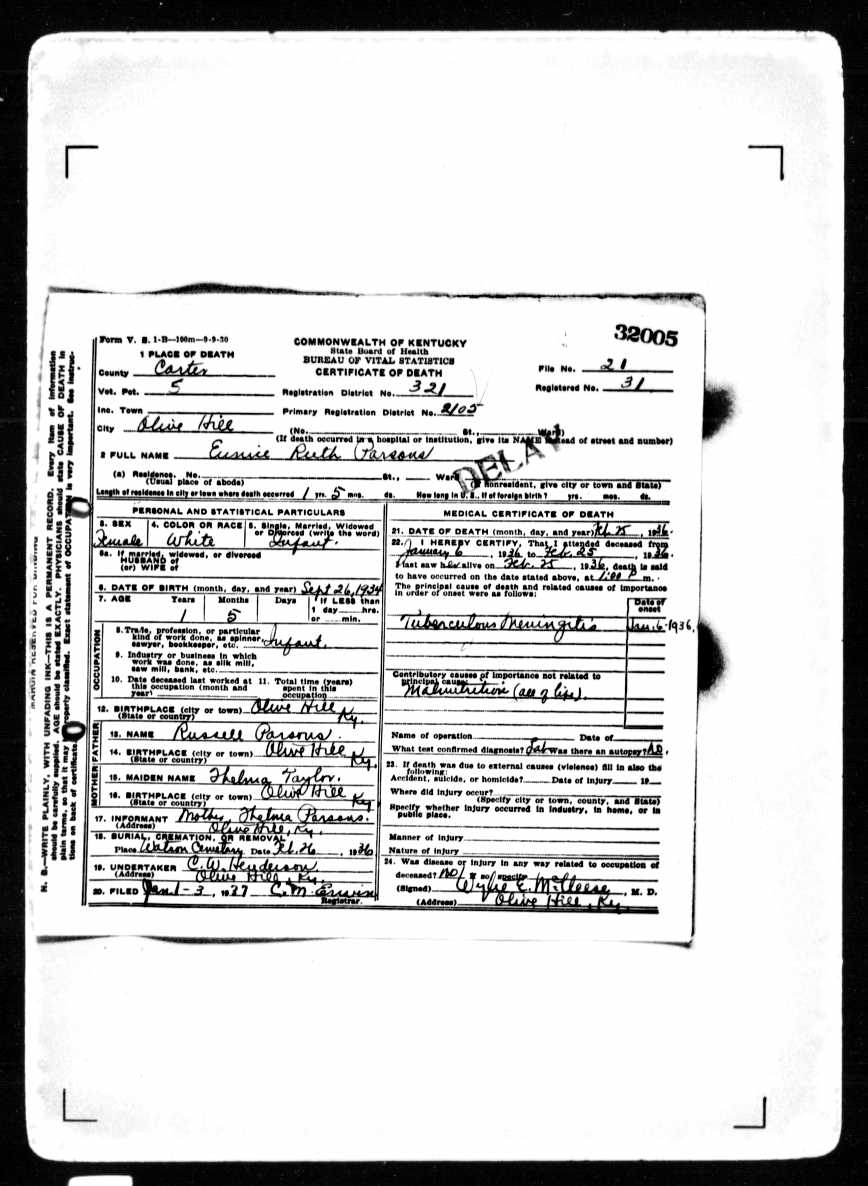 32005
Form V. S. 1-B—100m—9-9-30
COMMONWEALTH OF KENTUCKY
State Board of Health
BUREAU OF VITAL STATISTICS
CERTIFICATE OF DEATH
1 PLACE OF DEATH
County Carter
File No. 21
Vot. Pct. 5
Registration District No. 321
Registered No. 31
Inc. Town
Primary Registration District No. 2105
City Olive Hill
(No. St., Ward)
(If death occurred in a hospital or institution, give its NAME instead of street and number)
2 FULL NAME Eunice Ruth Parsons
DELAY
(a) Residence. No. St., Ward
(Usual place of abode) (If nonresident, give city or town and State)
Length of residence in city or town where death occurred 1 yrs. 5 mos. ds. How long in U. S., if of foreign birth? yrs. mos. ds.
PERSONAL AND STATISTICAL PARTICULARS
3. SEX Female
4. COLOR OR RACE White
5. Single, Married, Widowed
or Divorced (write the word)
Infant.
5a. If married, widowed, or divorced
HUSBAND of
(or) WIFE of
6. DATE OF BIRTH (month, day, and year) Sept 26, 1934
7. AGE Years Months Days If LESS than
1 day hrs.
or min.
1 5
OCCUPATION
8. Trade, profession, or particular
kind of work done, as spinner,
sawyer, bookkeeper, etc. Infant.
9. Industry or business in which
work was done, as silk mill,
saw mill, bank, etc.
10. Date deceased last worked at
this occupation (month and
year)
11. Total time (years)
spent in this
occupation
12. BIRTHPLACE (city or town) Olive Hill
(State or country) Ky.
FATHER
13. NAME Russell Parsons.
14. BIRTHPLACE (city or town) Olive Hill
(State or country) Ky.
MOTHER
15. MAIDEN NAME Thelma Taylor.
16. BIRTHPLACE (city or town) Olive Hill
(State or country) Ky
17. INFORMANT Mother, Thelma Parsons.
(Address) Olive Hill, Ky.
18. BURIAL, CREMATION, OR REMOVAL
Place Watson Cemetary Date Feb. 26, 1936
19. UNDERTAKER C. W. Henderson
(Address) Olive Hill, Ky.
20. FILED Jan. 1-3, 1937 C. M. Erwin
Registrar.
MEDICAL CERTIFICATE OF DEATH
21. DATE OF DEATH (month, day, and year) Feb. 25, 1936.
22. I HEREBY CERTIFY, That I attended deceased from
January 6, 1936 to Feb. 25, 1936.
I last saw her alive on Feb. 25, 1936, death is said
to have occurred on the date stated above, at 1:00 P m.
The principal cause of death and related causes of importance
in order of onset were as follows:
Date of
onset
Tuberculous Meningitis Jan. 6-1936.
Contributory causes of importance not related to
principal cause:
Malnutrition (all of life).
Name of operation Date of
What test confirmed diagnosis? Lab Was there an autopsy? No.
23. If death was due to external causes (violence) fill in also the
following:
Accident, suicide, or homicide? Date of injury 19
Where did injury occur?
(Specify city or town, county, and State)
Specify whether injury occurred in industry, in home, or in
public place.
Manner of injury
Nature of injury
24. Was disease or injury in any way related to occupation of
deceased? No If so, specify
(Signed) Wylie E. McCleese, M. D.
(Address) Olive Hill, Ky.
MARGIN RESERVED FOR BINDING
N. B.—WRITE PLAINLY, WITH UNFADING INK—THIS IS A PERMANENT RECORD. Every item of information
should be carefully supplied. AGE should be stated EXACTLY. PHYSICIANS should state CAUSE OF DEATH in
plain terms, so that it may be properly classified. Exact statement of OCCUPATION is very important. See instruc-
tions on back of certificate.